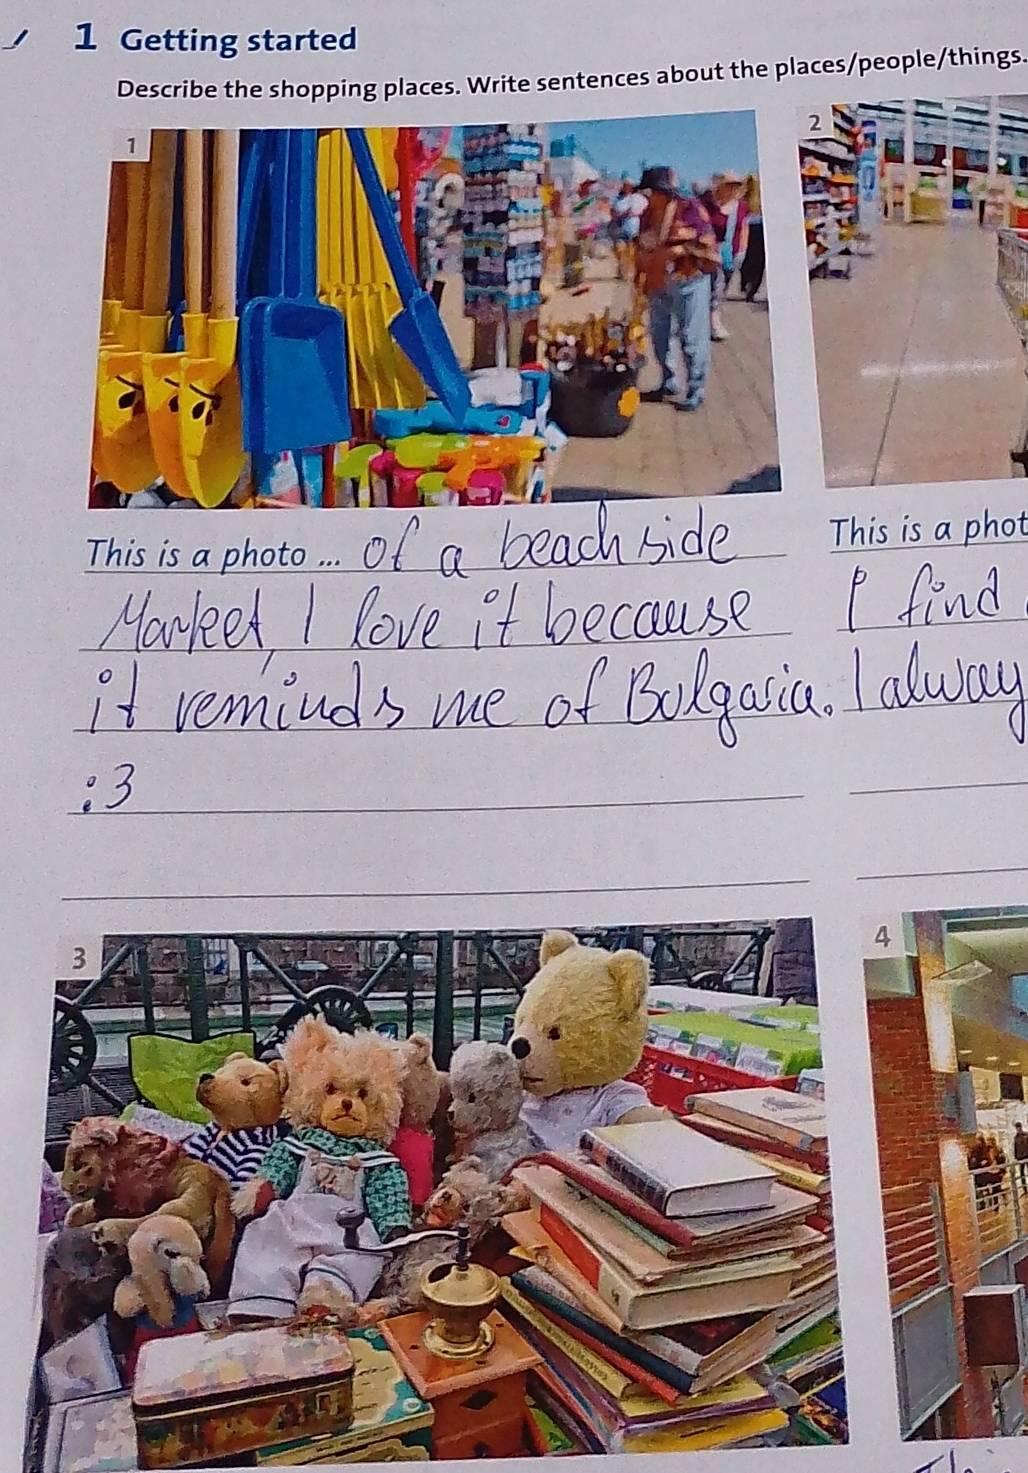 1 Getting started
Describe the shopping places. Write sentences about the places/people/things.
1
2
This is a photo ... of a beach side
Market, I love it because
it reminds me of Bulgaria.
:3
This is a phot
I find
I alway
3
4